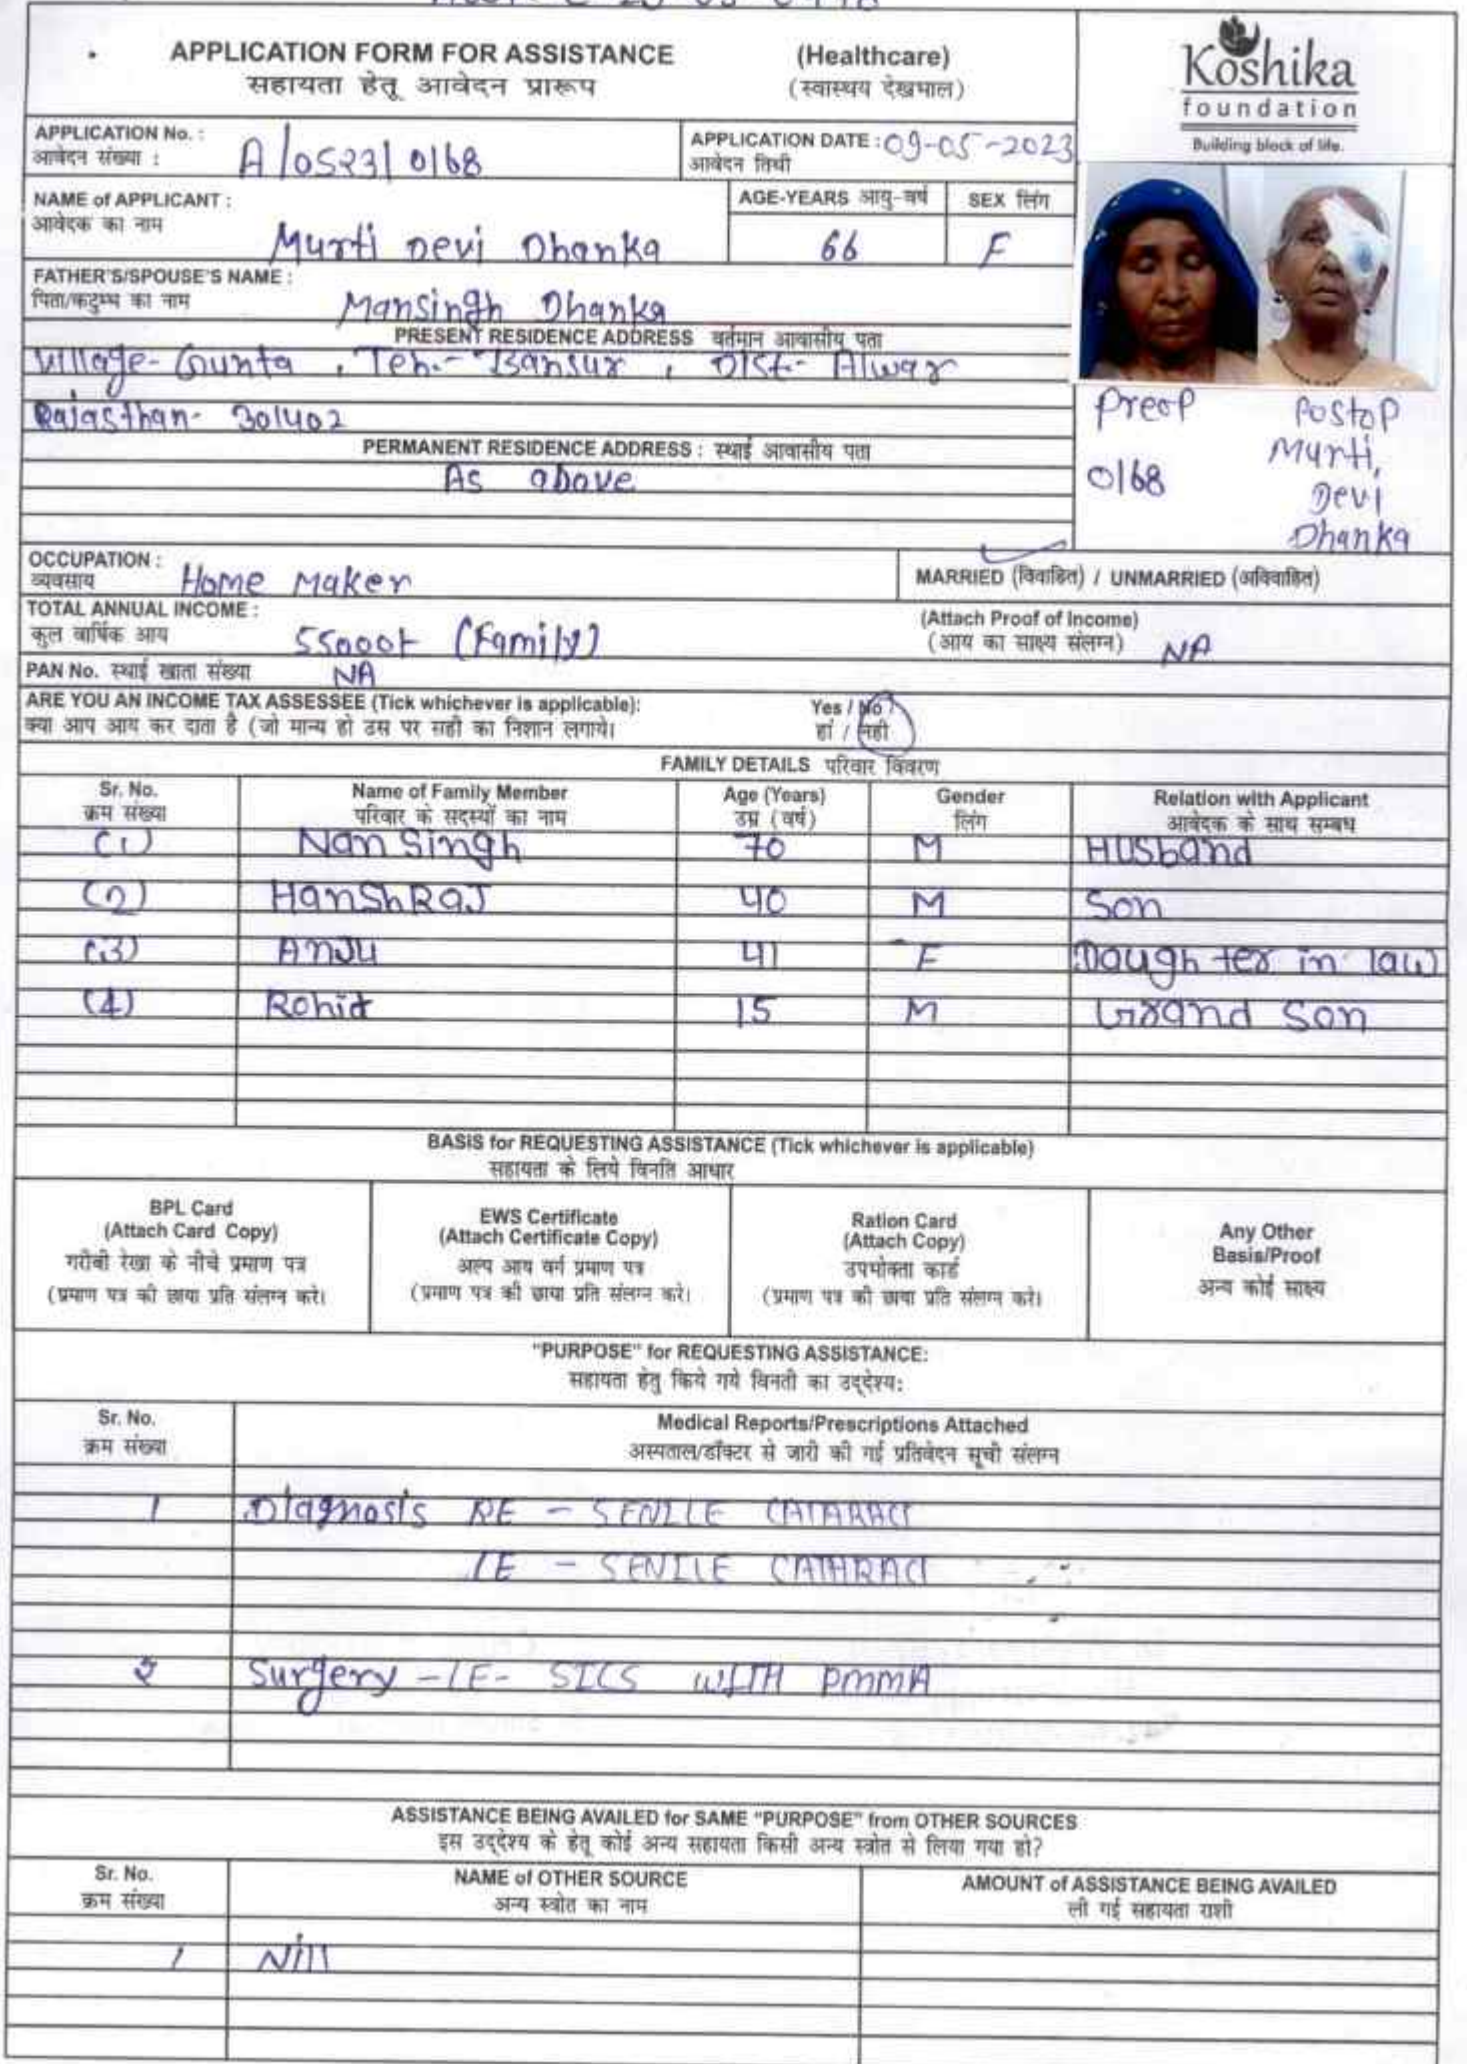 APPLICATION FORM FOR ASSISTANCE (Healthcare)
सहायता हेतू आवेदन प्रारूप (स्वास्थय देखभाल)
Koshika
foundation
Building block of life.
APPLICATION No. : A/0523/0168 APPLICATION DATE : 09-05-2023
आवेदन संख्या : आवेदन तिथी
NAME of APPLICANT : AGE-YEARS आयु-वर्ष SEX लिंग
आवेदक का नाम Murti Devi Dhanka 66 F
FATHER'S/SPOUSE'S NAME :
पिता/कटुम्ब का नाम Mansingh Dhanka
PRESENT RESIDENCE ADDRESS वर्तमान आवासीय पता
Village- Gunta , Teh.- Bansur , Dist- Alwar
Rajasthan- 301402
PERMANENT RESIDENCE ADDRESS : स्थाई आवासीय पता
As above
Preop Postop
0168 Murti
Devi
Dhanka
OCCUPATION :
व्यवसाय Home Maker MARRIED (विवाहित) / UNMARRIED (अविवाहित)
TOTAL ANNUAL INCOME : (Attach Proof of Income)
कुल वार्षिक आय 55000 (Family) (आय का साक्ष्य संलग्न) NA
PAN No. स्थाई खाता संख्या NA
ARE YOU AN INCOME TAX ASSESSEE (Tick whichever is applicable): Yes / No
क्या आप आय कर दाता है (जो मान्य हो उस पर सही का निशान लगाये। हां / नही
FAMILY DETAILS परिवार विवरण
Sr. No. Name of Family Member Age (Years) Gender Relation with Applicant
क्रम संख्या परिवार के सदस्यों का नाम उम्र (वर्ष) लिंग आवेदक के साथ सम्बध
(1) Nan Singh 70 M Husband
(2) HanshRaj 40 M Son
(3) Anju 41 F Daughter in law
(4) Rohit 15 M Grand Son
BASIS for REQUESTING ASSISTANCE (Tick whichever is applicable)
सहायता के लिये विनति आधार
BPL Card
(Attach Card Copy)
गरीबी रेखा के नीचे प्रमाण पत्र
(प्रमाण पत्र की छाया प्रति संलग्न करे।
EWS Certificate
(Attach Certificate Copy)
अल्प आय वर्ग प्रमाण पत्र
(प्रमाण पत्र की छाया प्रति संलग्न करे।
Ration Card
(Attach Copy)
उपभोक्ता कार्ड
(प्रमाण पत्र की छाया प्रति संलग्न करे।
Any Other
Basis/Proof
अन्य कोई साक्ष्य
"PURPOSE" for REQUESTING ASSISTANCE:
सहायता हेतु किये गये विनती का उद्देश्य:
Sr. No. Medical Reports/Prescriptions Attached
क्रम संख्या अस्पताल/डॉक्टर से जारी की गई प्रतिवेदन सूची संलग्न
1 Diagnosis RE - SENILE CATARACT
LE - SENILE CATARACT
2 Surgery - LE- SICS WITH PMMA
ASSISTANCE BEING AVAILED for SAME "PURPOSE" from OTHER SOURCES
इस उद्देश्य के हेतु कोई अन्य सहायता किसी अन्य स्त्रोत से लिया गया हो?
Sr. No. NAME of OTHER SOURCE AMOUNT of ASSISTANCE BEING AVAILED
क्रम संख्या अन्य स्त्रोत का नाम ली गई सहायता राशी
1 Nill